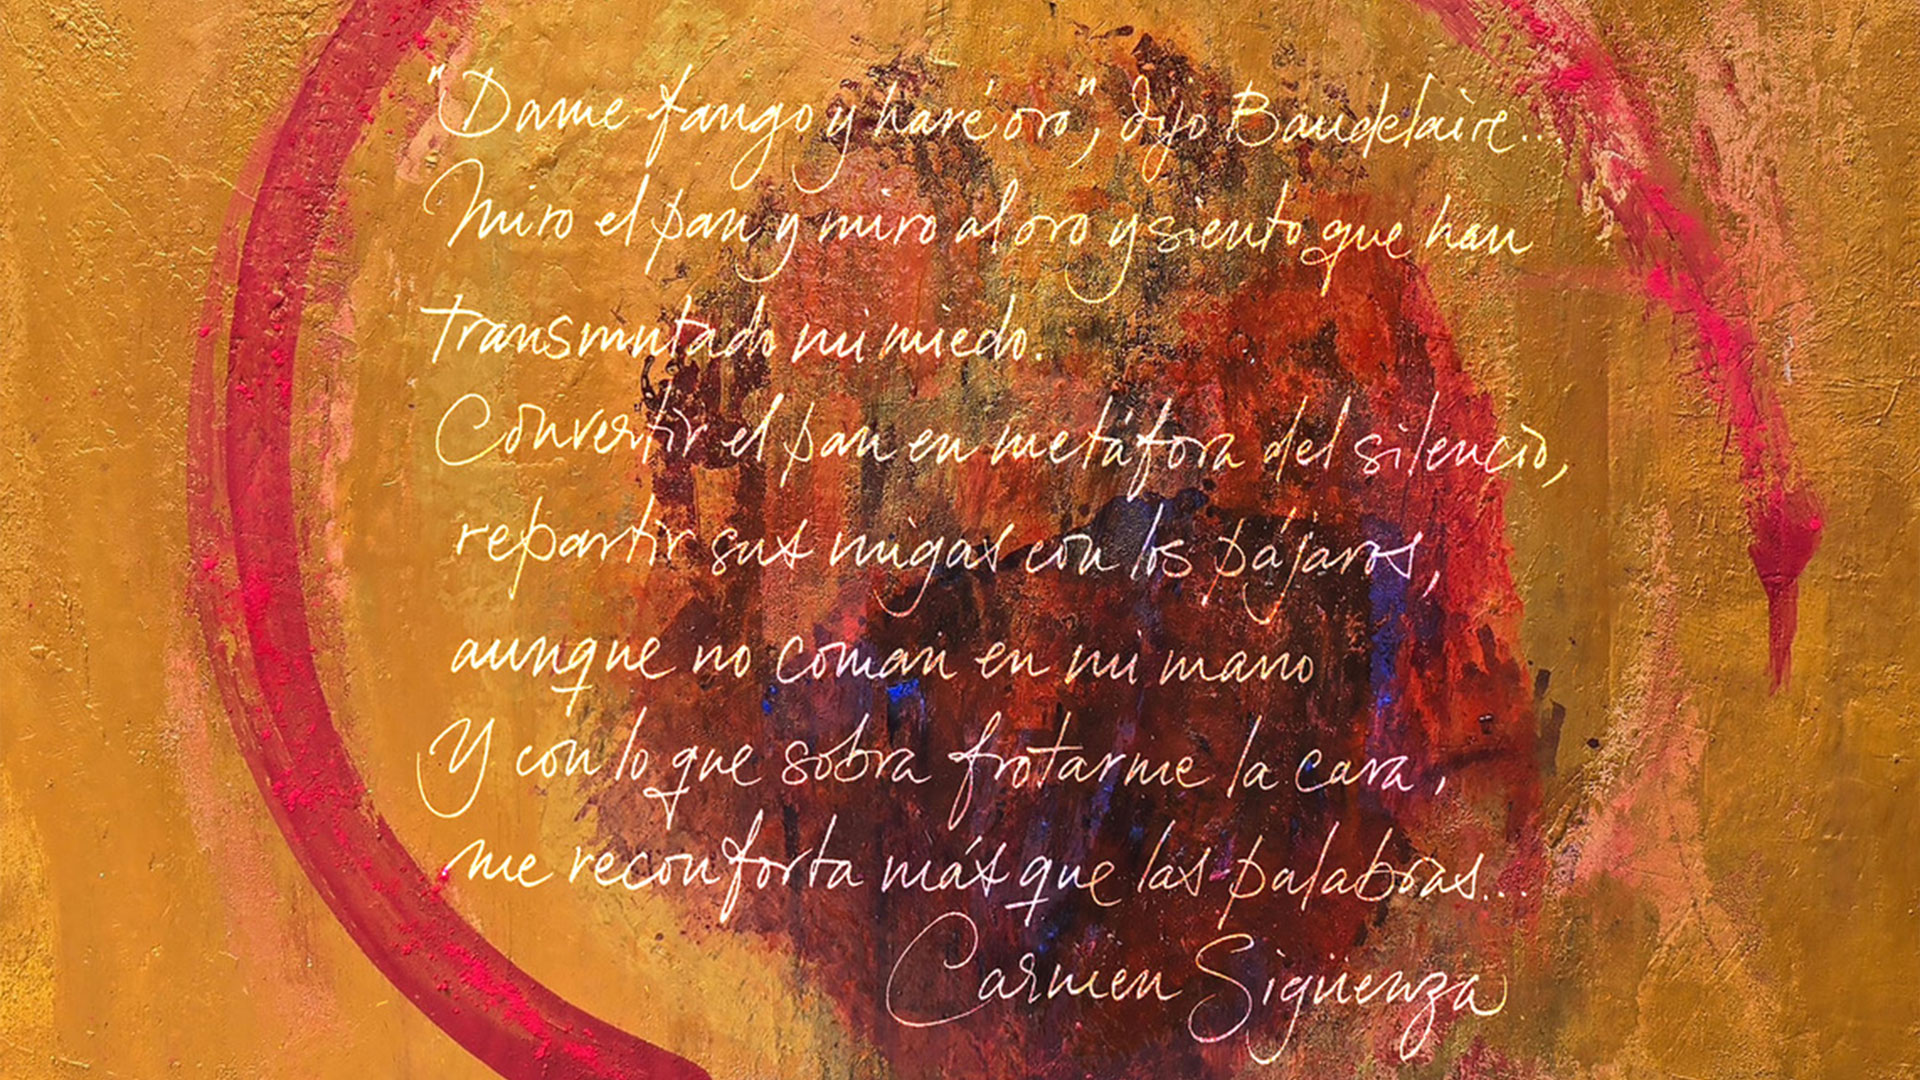 "Dame fango y haré oro", dijo Baudelaire..
Miro el pan y miro al oro y siento que han
transmutado mi miedo.
Convertir el pan en metáfora del silencio,
repartir sus migas con los pájaros,
aunque no coman en mi mano
Y con lo que sobra frotarme la cara,
me reconforta más que las palabras...
Carmen Sigüenza